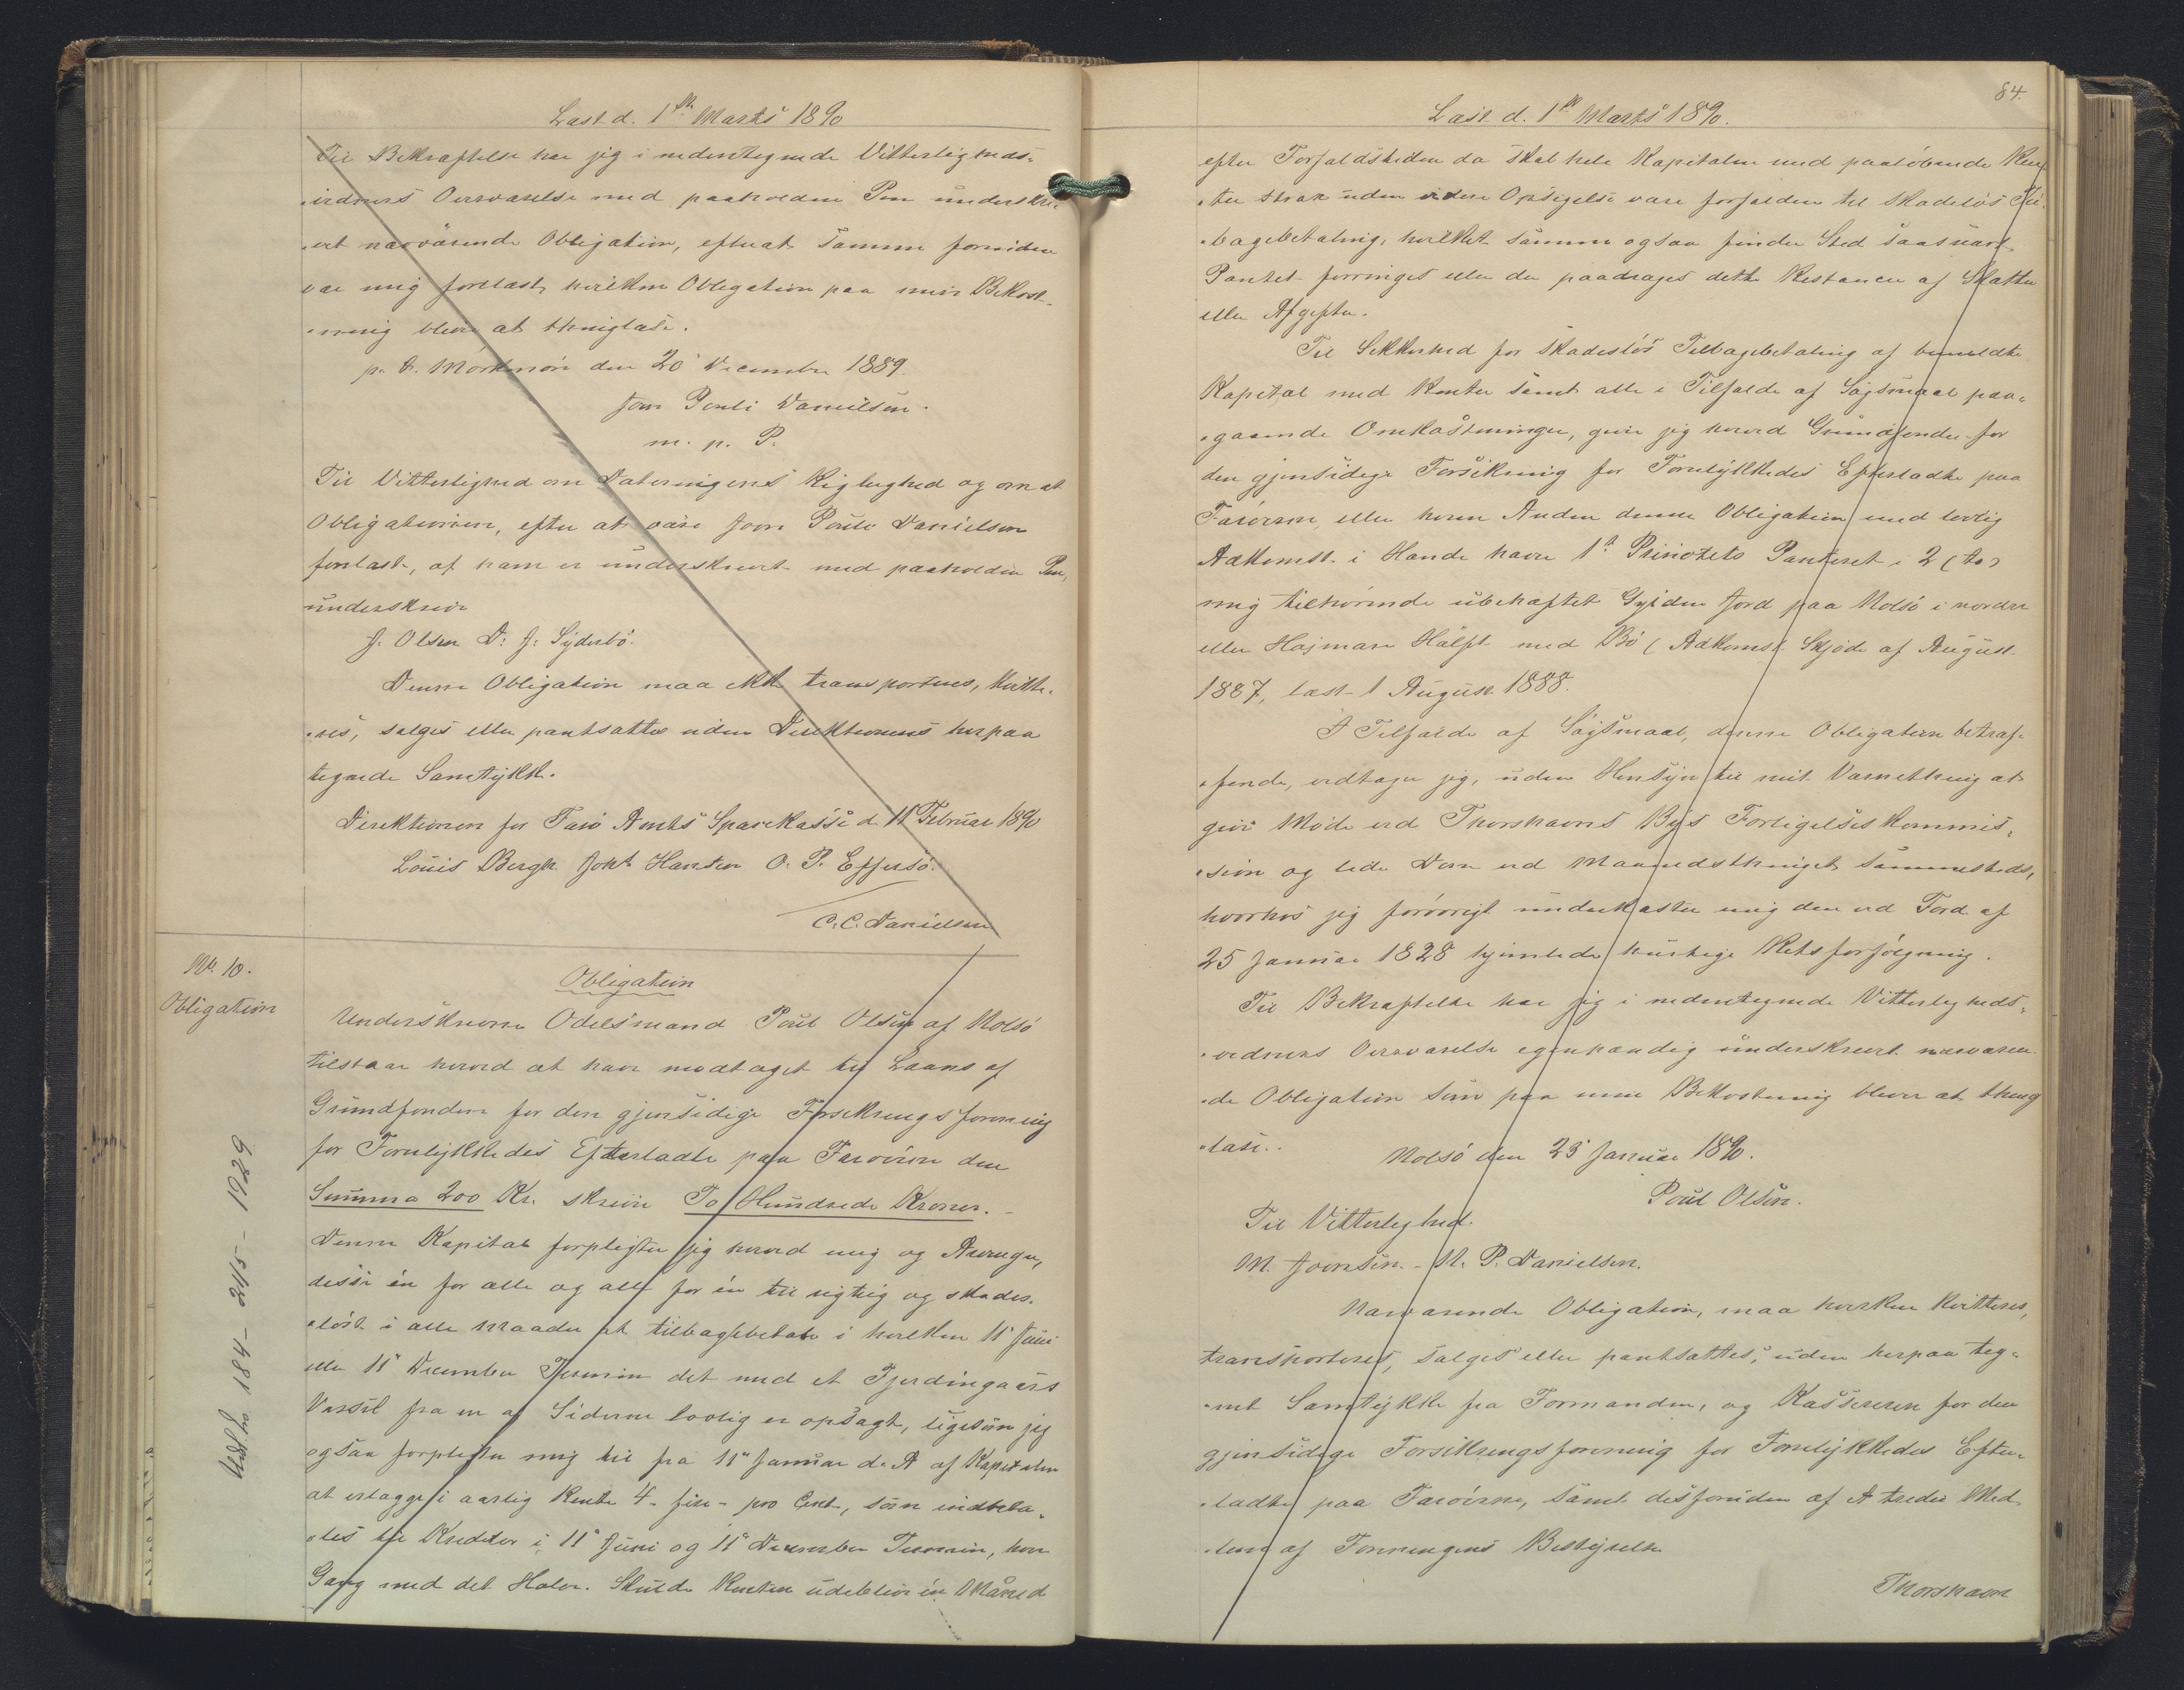 Læst d. 1ste Marts 1890
Til Bekræftelse har jeg i nedentegnede Vitterligheds-
vidners Overværelse med paaholden Pen underskre-
vet nærværende Obligation, efterat samme forinden
var mig forelæst, hvilken Obligation paa min Bekost-
ning bliver at thinglæse.
p. t. den 20 December 1889.
Joen Pouli Danielsen.
m. p. P.
Til Vitterlighed om Dateringens Rigtighed og om at
Obligationen, efter at være Joen Poule Danielsen
forelæst, af ham er underskrevet med paaholden Pen,
underskriver
J. Olsen D: J: Syderbö.
Denne Obligation maa ikke transporteres, kvitte-
res, sælges eller pantsættes uden Direktionens herpaa
tegnede Samtykke.
Direktionen for Færø Amts Sparekasse d. 11 Februar 1890
Louis Bergh. Johs Hansen O. P. Effersö.
C. C. Danielsen
No. 10.
Obligation
Obligation
Underskrevne Odelsmand Poul Olsen af Nolsö
tilstaar herved at have modtaget til Laans af
Grundfonden for den gjensidige Forsikringsforening
for Forulykkedes Efterladte paa Færöerne den
Summa 200 Kr. skriver To Hundrede Kroner. -
Denne Kapital forpligter jeg herved mig og Arvinger,
disse én for alle og alle for én til rigtig og skades-
löst i alle Maader at tilbagebetale i hvilken 11 Juni
eller 11 December Termin det med et Fjerdingaars
Varsel fra en af Siderne lovlig er opsagt, ligesom jeg
ogsaa forpligter mig til fra 11 Januar d. A. af Kapitalen
at erlægge i aarlig Rente 4 - fire - pro Cent, som indbeta-
les til Kreditor i 11 Juni og 11 December Termin, hver
Gang med det Halve. Skulde Renten udeblive én Måned
Udsl. 184 - 24/5 - 1929
84.
Læst d. 1ste Marts 1890.
efter Forfaldstiden da skal hele Kapitalen med paalöbende Ren-
ter strax uden videre Opsigelse være forfalden til skadelös Til-
bagebetaling, hvilket samme ogsaa finder Sted saasnart
Pantet forringes eller der paadrages dette Restancer af Skatter
eller Afgifter.
Til Sikkerhed for skadeslös Tilbagebetaling af bemeldte
Kapital med Renter samt alle i Tilfælde af Søgsmaal paa-
gaaende Omkostninger, giver jeg herved Grundfonden for
den gjensidige Forsikring for Forulykkedes Efterladte paa
Færöerne, eller hvem Anden denne Obligation med lovlig
Adkomst i Hænde haver 1st Prioritets Panteret i 2 (to)
mig tilhörende ubehæftet Gylden Jord paa Nolsö i nordre
eller Hajmare Hålft med Bö (Adkomst Skjöde af August
1887, læst 1 August 1888.
I Tilfælde af Sögsmaal, denne Obligation betræf-
fende, vedtager jeg, uden Hensyn til mit Værnething at
give Möde ved Thorshavns Bys Forligelses kommis-
sion og lide Dom ved Maanedsthinget sammesteds,
hvorhos jeg forövrigt underkaster mig den ved Ford. af
25 Januar 1828 hjemlede hurtige Retsforfölgning.
Til Bekræftelse har jeg i nedentegnede Vitterligheds-
vidners Overværelse egenhændig underskrevet nærværen-
de Obligation som paa min Bekostning bliver at thing
læse.
Nolsö den 25 Januar 1890.
Poul Olsen.
Til Vitterlighed.
M. Joensen. - N. P. Danielsen.
Nærværende Obligation, maa hverken kvitteres,
transporteres, sælges eller pantsættes, uden herpaa teg-
net Samtykke fra Formanden, og Kassereren for den
gjensidige Forsikringsforening for Forulykkedes Efter-
ladte paa Færöerne, samt desforuden af et tredie Med-
lem af Foreningens Bestyrelse
Thorshavn